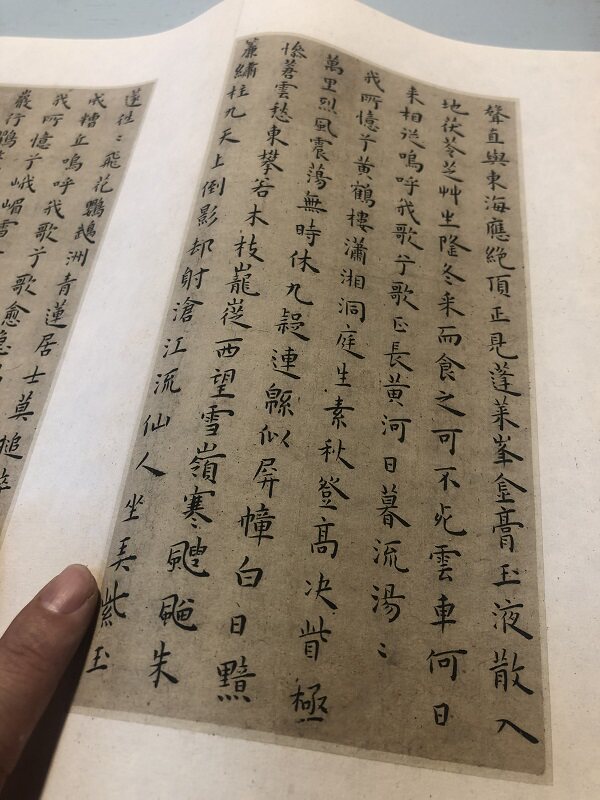 聲直與東海應絶頂正見蓬萊峯金膏玉液散入
地茯苓芝艸生隆冬采而食之可不死雲車何日
来相從嗚呼我歌兮歌正長黃河日暮流湯〻
我所憶兮黃鶴樓瀟湘洞庭生素秋登高决眥極
萬里烈風震蕩無時休九疑連緜似屏幛白日黯
慘蒼雲愁東攀若木枝巃嵸西望雪嶺寒颼飀朱
簾繡柱九天上倒影却射滄江流仙人坐弄紫玉
徃〻飛花鸚鵡洲青蓮居士莫槌碎
糟丘嗚呼我歌兮歌愈
我所憶兮峨嵋雪